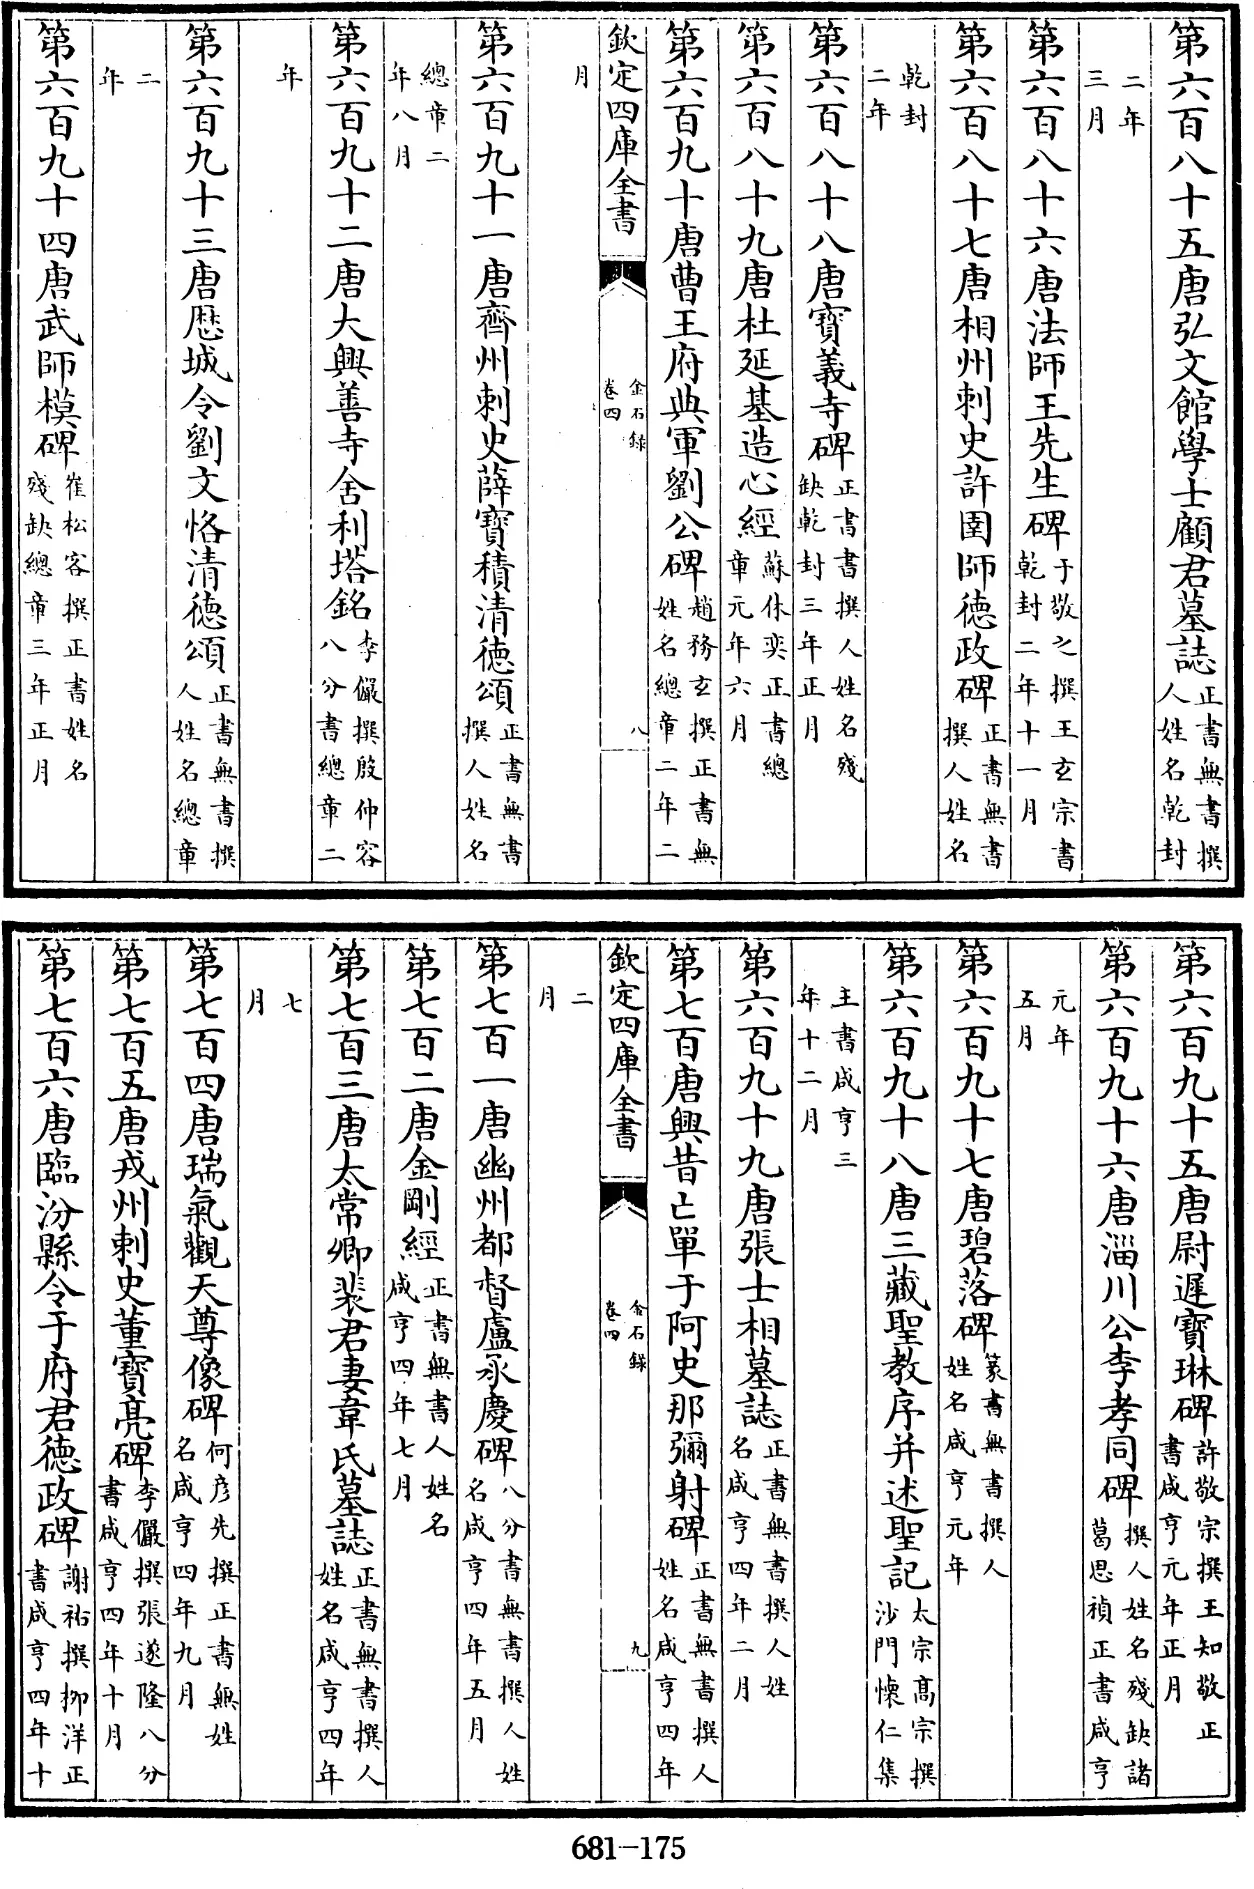 第六百八十五唐弘文館學士顧君墓誌正書無書撰人姓名乾封
二年三月
第六百八十六唐法師王先生碑于敬之撰王玄宗書乾封二年十一月
第六百八十七唐相州刺史許圉師德政碑正書無書撰人姓名
乾封二年
第六百八十八唐寶義寺碑正書書撰人姓名殘缺乾封三年正月
第六百八十九唐杜延基造心經蘇休奕正書總章元年六月
第六百九十唐曹王府典軍劉公碑趙務玄撰正書無姓名總章二年二
欽定四庫全書
金石録
卷四
八
月
第六百九十一唐齊州刺史薛寶積清德頌正書無書撰人姓名
總章二年八月
第六百九十二唐大興善寺舍利塔銘李儼撰殷仲容八分書總章二
年
第六百九十三唐歷城令劉文恪清德頌正書無書撰人姓名總章
二年
第六百九十四唐武師模碑崔松客撰正書姓名殘缺總章三年正月
第六百九十五唐尉遲寶琳碑許敬宗撰王知敬正書咸亨元年正月
第六百九十六唐淄川公李孝同碑撰人姓名殘缺諸葛思禎正書咸亨
元年五月
第六百九十七唐碧落碑篆書無書撰人姓名咸亨元年
第六百九十八唐三藏聖教序并述聖記太宗髙宗撰沙門懷仁集
主書咸亨三年十二月
第六百九十九唐張士相墓誌正書無書撰人姓名咸亨四年二月
第七百唐興昔亡單于阿史那彌射碑正書無書撰人姓名咸亨四年
欽定四庫全書
金石録
卷四
九
二月
第七百一唐幽州都督盧承慶碑八分書無書撰人姓名咸亨四年五月
第七百二唐金剛經正書無書人姓名咸亨四年七月
第七百三唐太常卿裴君妻韋氏墓誌正書無書撰人姓名咸亨四年
七月
第七百四唐瑞氣觀天尊像碑何彦先撰正書無姓名咸亨四年九月
第七百五唐戎州刺史董寶亮碑李儼撰張遂隆八分書咸亨四年十月
第七百六唐臨汾縣令于府君德政碑謝祐撰柳洋正書咸亨四年十
681-175